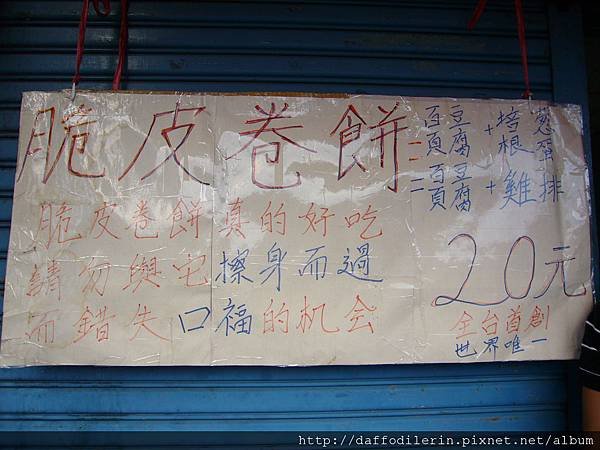 脆皮卷餅
脆皮卷餅真的好吃
請勿與它擦身而過
而錯失口福的机会
蔥蛋
培根雞排
+ +
豆腐豆腐
百頁百頁
一 二
20元
全台首創
世界唯一
http://daffodilerin.pixnet.net/album